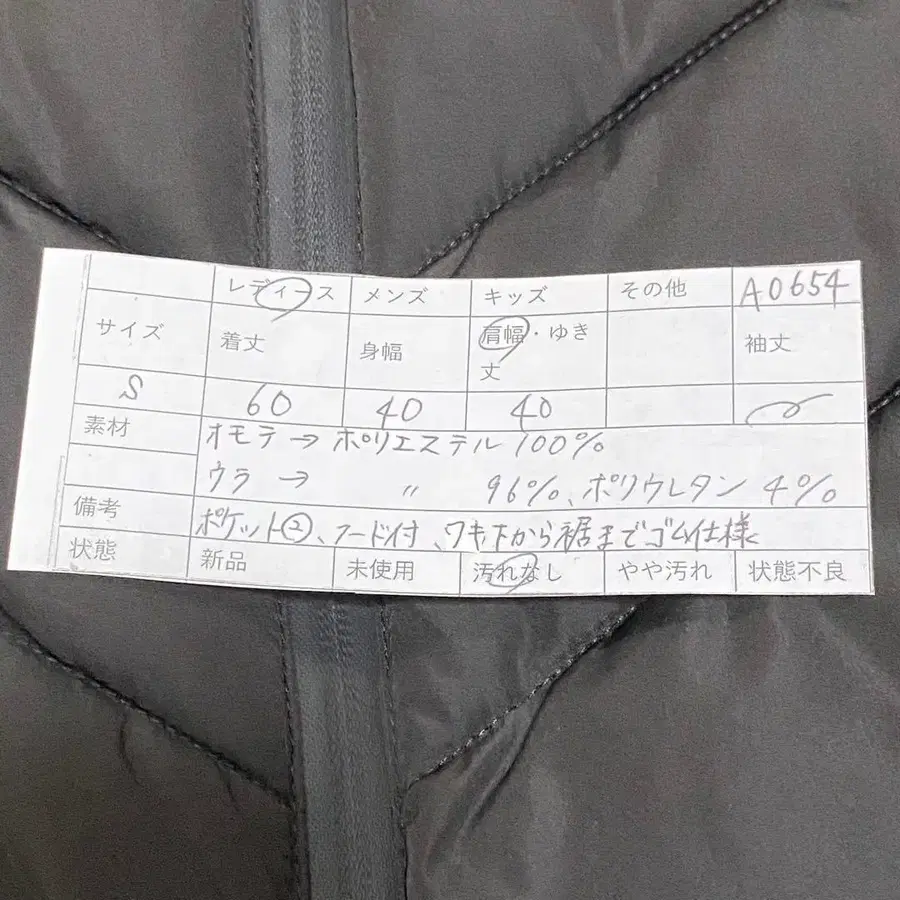 レディース メンズ キッズ その他 A0654
サイズ 着丈 身幅 肩幅・ゆき丈 袖丈
S 60 40 40
素材 オモテ→ポリエステル 100%
ウラ→ 〃 96%、ポリウレタン 4%
備考 ポケット②、フード付、ワキ下から裾までゴム仕様
状態 新品 未使用 汚れなし やや汚れ 状態不良